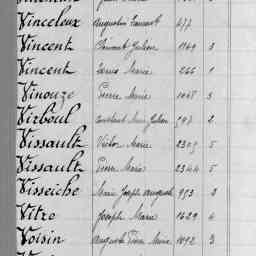 Vinceleux Augustin Laurent 477
Vincent Clément Julien 1169 3
Vincent James Marie 266 1
Vinouze Pierre Marie 1048 3
Virboul Constant Marie Julien 547 2
Vissault Victor Marie 2305 5
Vissault Pierre Marie 2344 5
Visseiche Marie Joseph Auguste 953 2
Vitre Joseph Marie 1629 4
Voisin Auguste Pierre Marie 1092 3